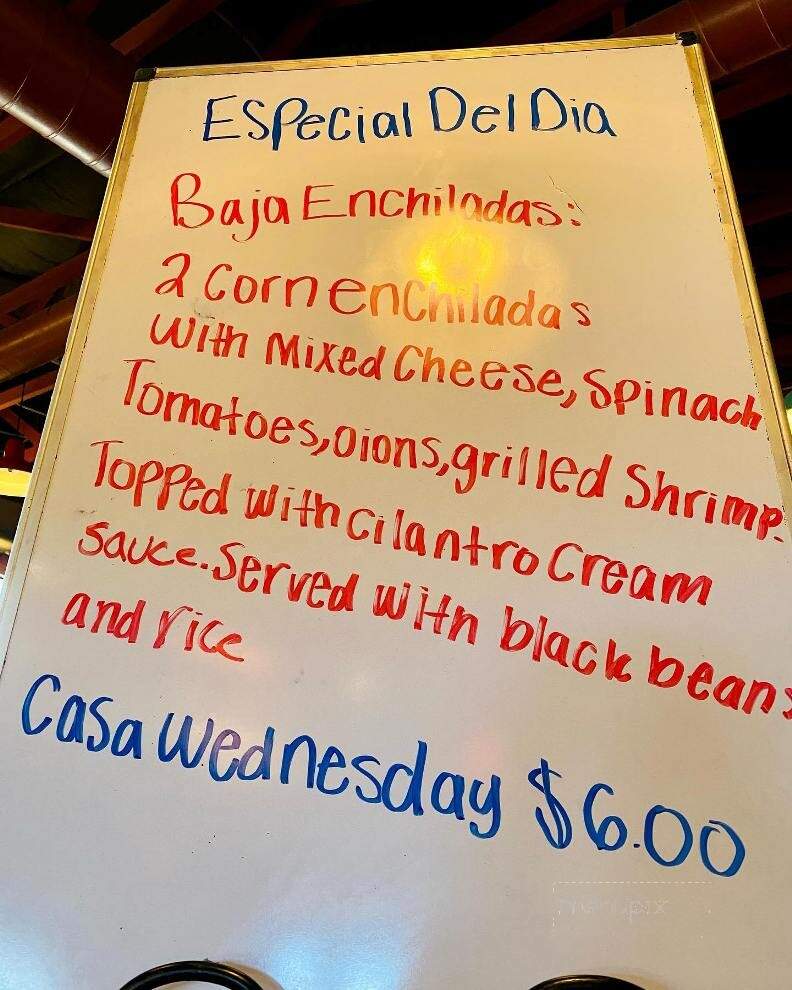 Especial Del Dia
Baja Enchiladas:
2 corn enchiladas
with Mixed Cheese, Spinach
Tomatoes, oions, grilled Shrimp.
Topped with cilantro Cream
sauce. Served with black beans
and rice
Casa Wednesday $6.00
menupix